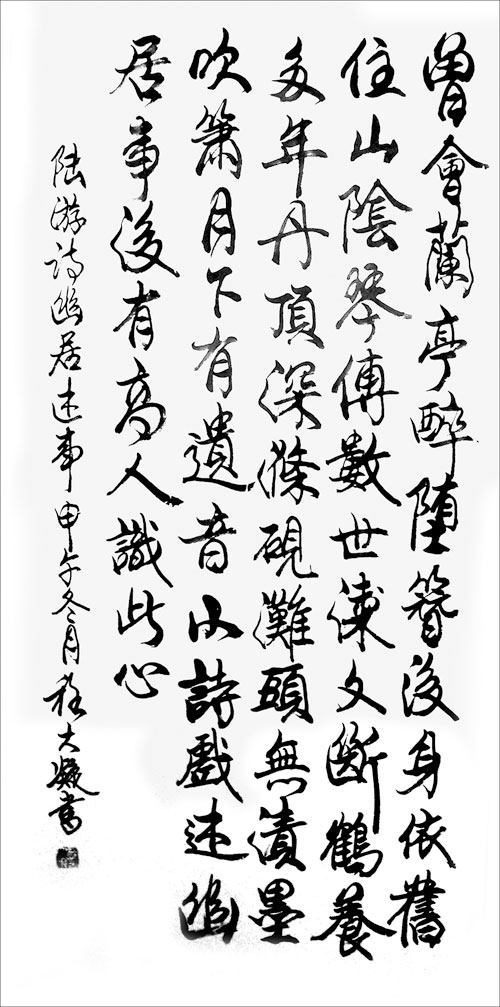 曾會蘭亭醉堕簪後身依舊
住山陰琴傳數世漆文斷鶴養
多年丹頂深滌硯灘頭無漬墨
吹簫月下有遺音小詩戲述幽
居事後有高人識此心
陆游诗幽居述事甲午冬月程大凝書